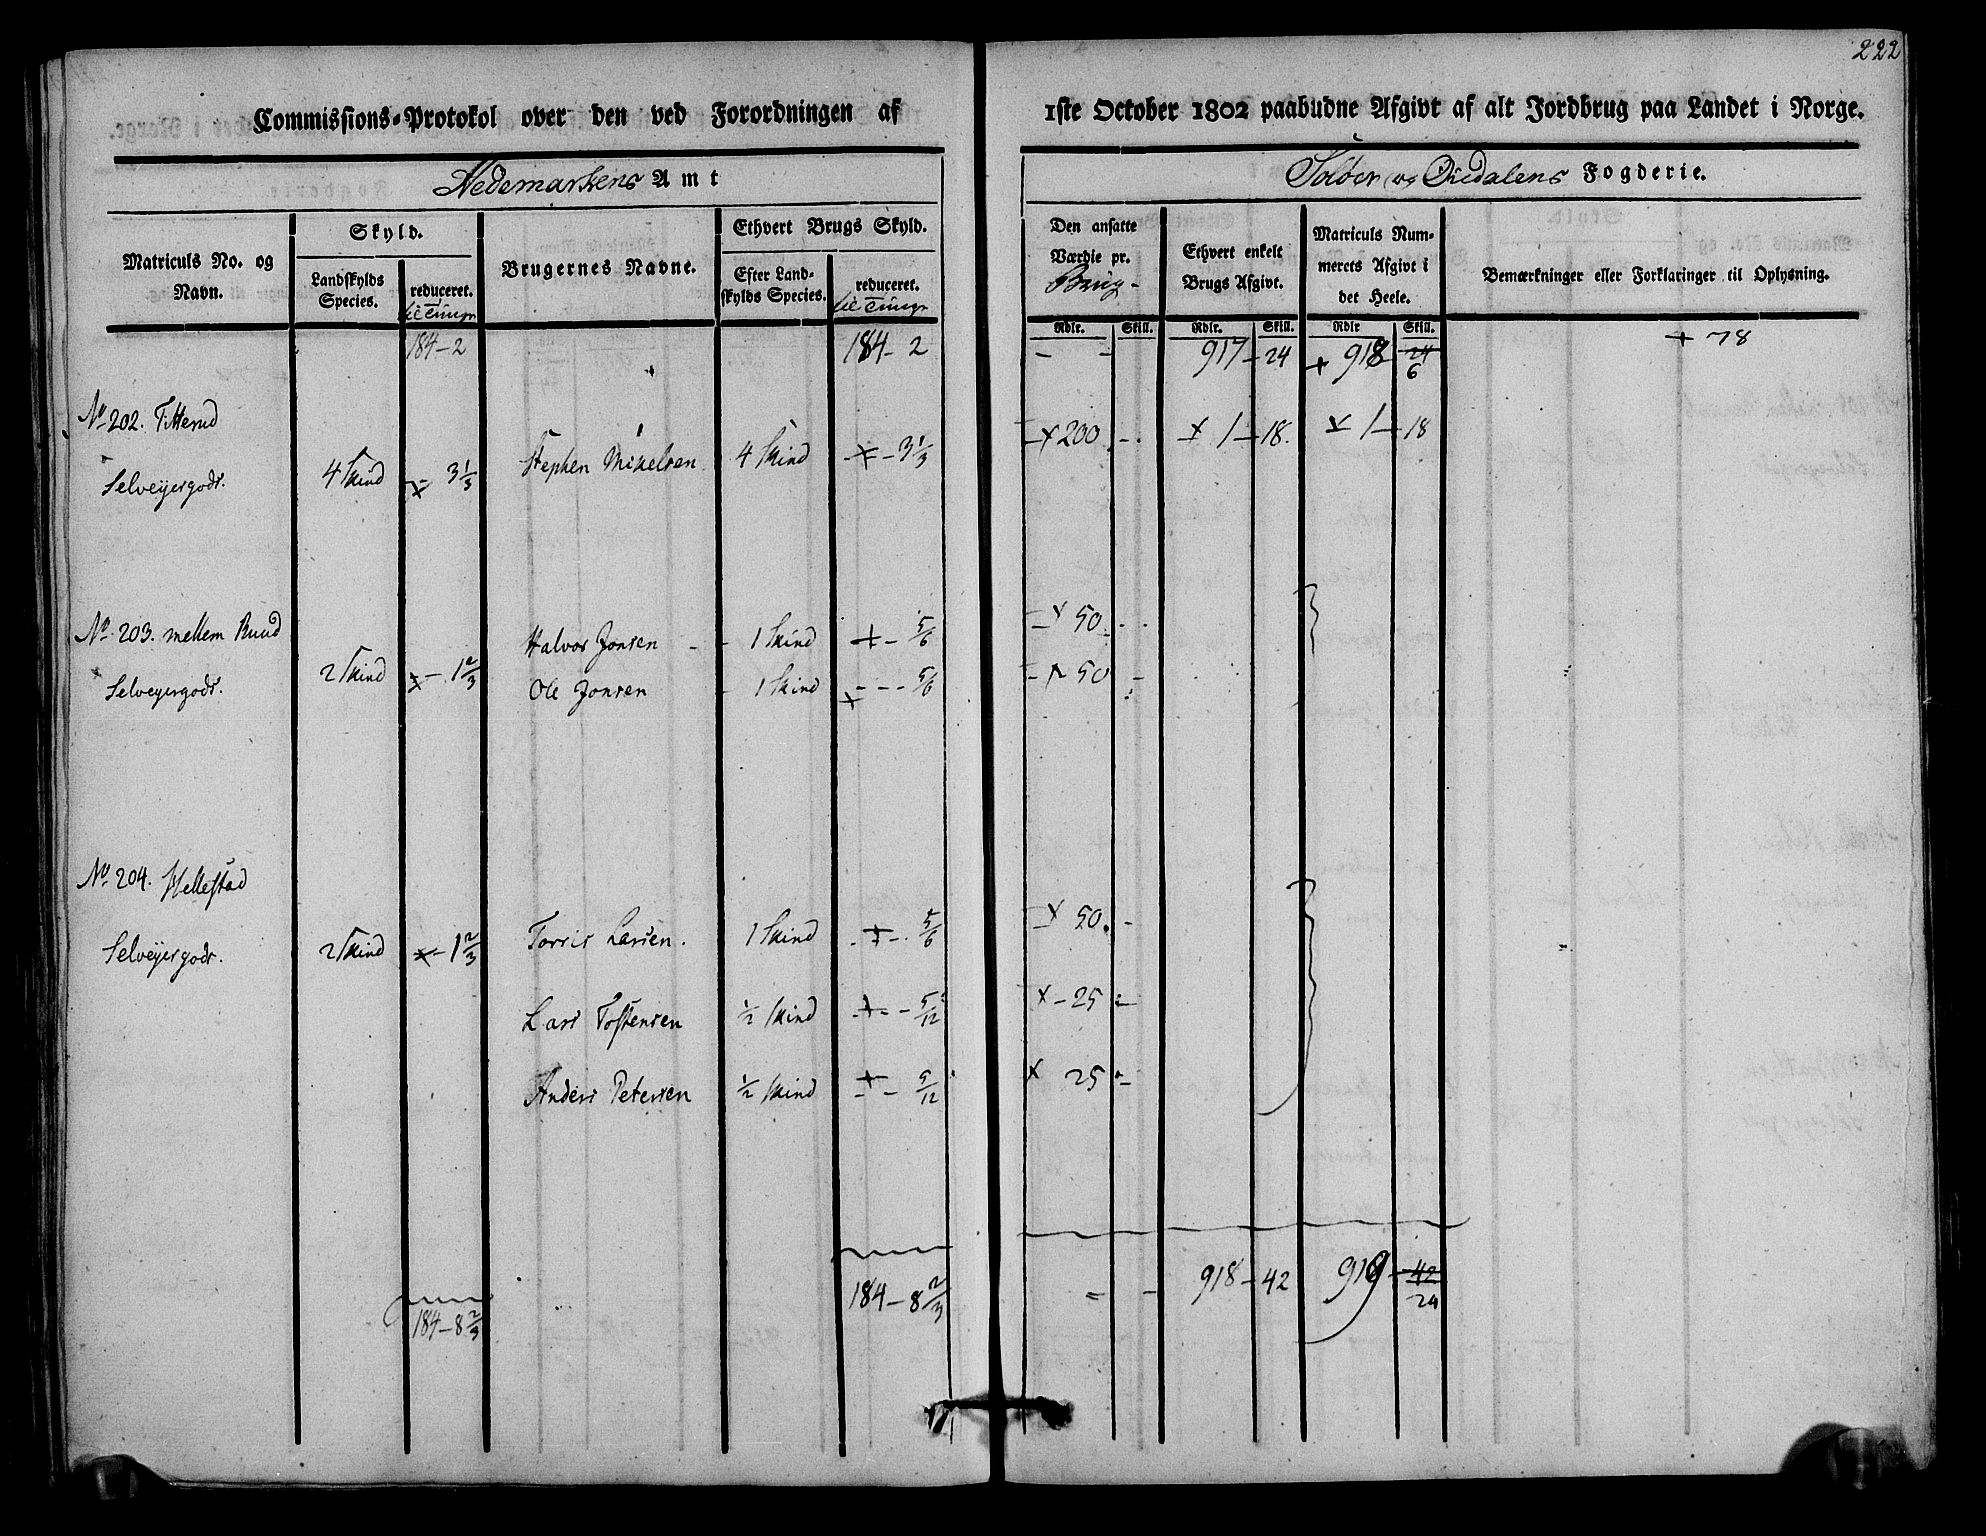 222
Commissions-Protokol over den ved Forordningen af 1ste October 1802 paabudne Afgivt af alt Jordbrug paa Landet i Norge.
Hedemarkens Amt
Soløer og Østdalens Fogderie.
Matriculs No. og Navn.
Skyld.
Landskylds Species.
reduceret.
Brugernes Navne.
Ethvert Brugs Skyld.
Efter Landskylds Species.
reduceret.
Den ansatte Værdie pr. Brug
Ethvert enkelt Brugs Afgivt.
Matriculs Nummerets Afgivt i det Heele.
Bemærkninger eller Forklaringer til Oplysning.
Rdlr. Skill. Rdlr. Skill. Rdlr Skill.
184-2 184-2 - - 917-24 + 918 24 6 + 78
No 202. Titterud
Selveyergods. 4 Skind 3 1/3 Stephen Mikelsen 4 Skind 3 1/3 200 1-18. 1-18
No 203. mellem Ruud Halvor Jonsen - 1 Skind 5/6 50
Selveyergods. 2 Skind 1 2/3 Ole Jonsen - 1 Skind 5/6 50
No 204. Hellestad
Selveyergods. 2 Skind 1 2/3 Torris Larsen. 1 Skind 5/6 50
Lars Tostensen 1/2 Skind 5/12 25
Anders Petersen 1/2 Skind 5/12 25
184-8 2/3 184-8 2/3 918-42 919 42 24